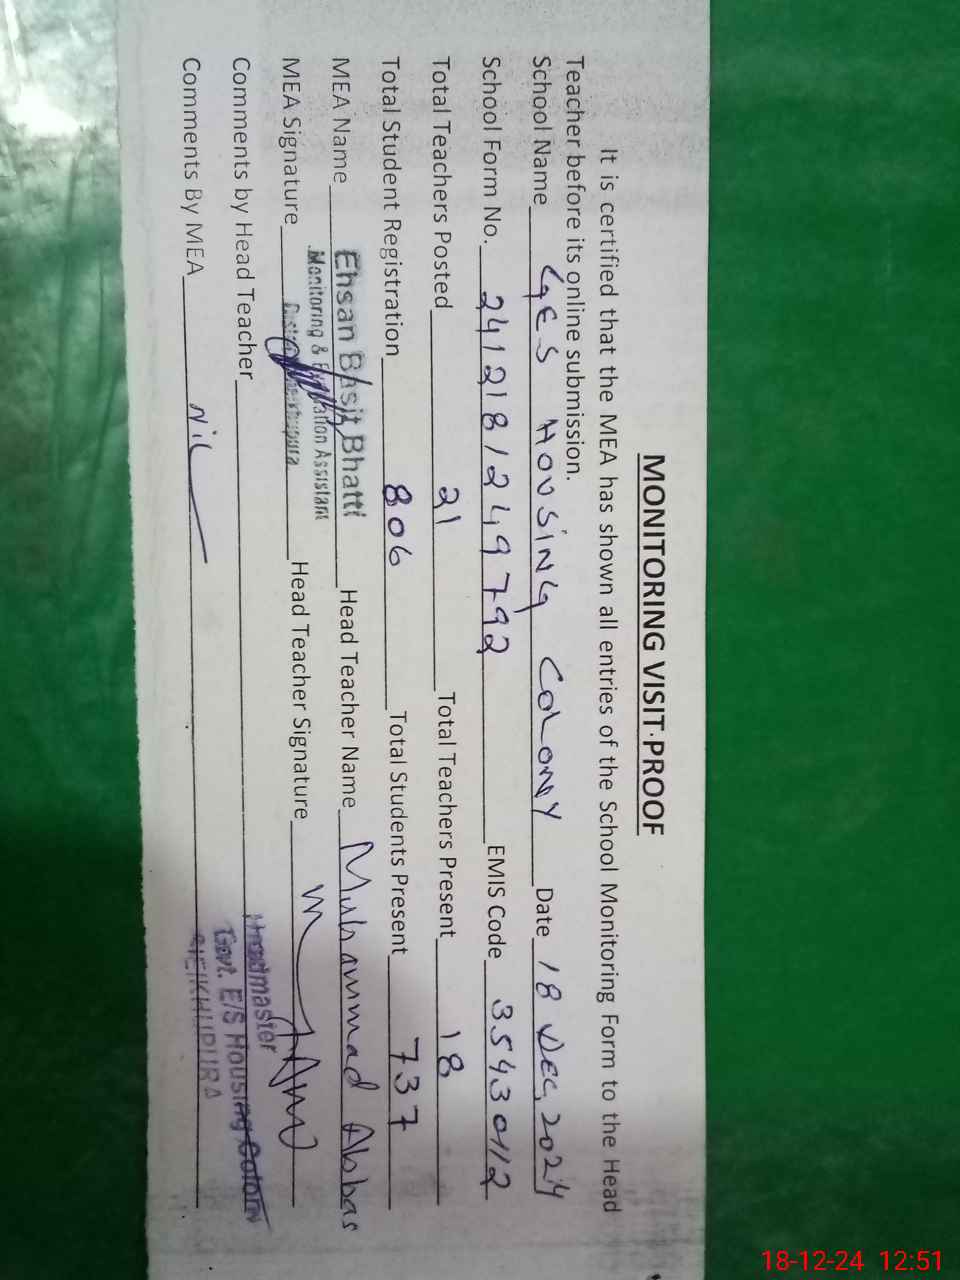 MONITORING VISIT PROOF
It is certified that the MEA has shown all entries of the School Monitoring Form to the Head
Teacher before its online submission.
School Name GES HOUSING COLONY Date 18 DEC, 2024
School Form No. 241218124 9792 EMIS Code 35430112
Total Teachers Posted 21 Total Teachers Present 18
Total Student Registration 806 Total Students Present 737
MEA Name Ehsan Basit Bhatti Head Teacher Name Muhammad Abbas
Monitoring & Evaluation Assistant
MEA Signature Head Teacher Signature
District Sheikhupura
Comments by Head Teacher
Headmaster
Govt. E/S Housing Colony
SHEIKHUPURA
Comments By MEA Nil
18-12-24 12:51